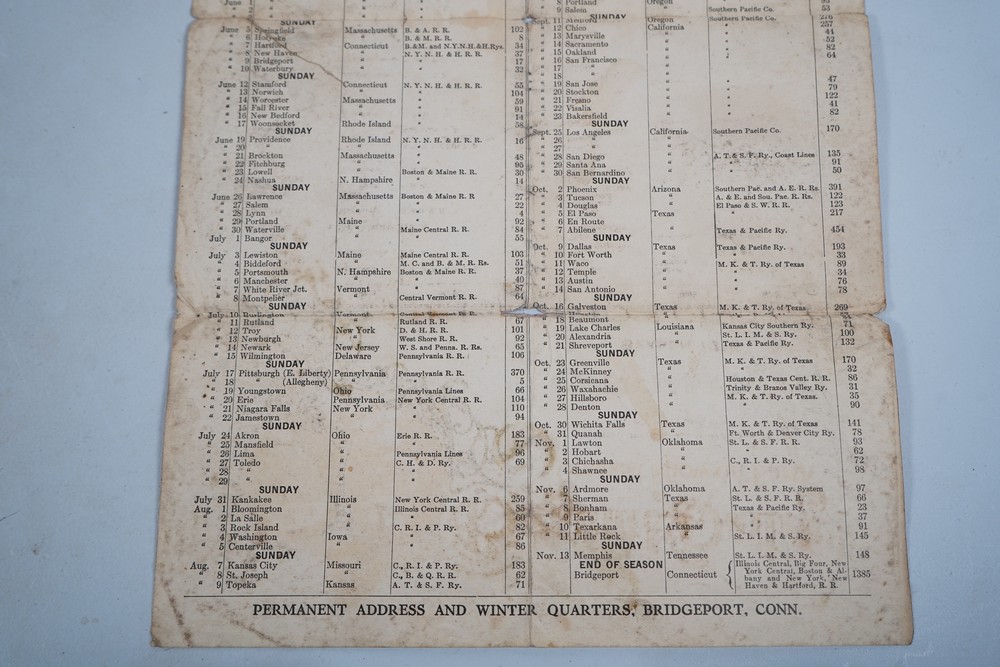 June 1
SUNDAY
June 5 Springfield Massachusetts B. & A. R. R. 102
" 6 Holyoke " B. & M. R. R. 8
" 7 Hartford Connecticut B. & M. and N.Y.N.H.&H.Rys. 34
" 8 New Haven " N. Y. N. H. & H. R. R. 37
" 9 Bridgeport " " 17
" 10 Waterbury " " 32
SUNDAY
June 12 Stamford Connecticut N. Y. N. H. & H. R. R. 55
" 13 Norwich " " 104
" 14 Worcester Massachusetts " 59
" 15 Fall River " " 91
" 16 New Bedford " " 14
" 17 Woonsocket Rhode Island " 58
SUNDAY
June 19 Providence Rhode Island N. Y. N. H. & H. R. R. 16
" 20 " " "
" 21 Brockton Massachusetts " 48
" 22 Fitchburg " " 95
" 23 Lowell " Boston & Maine R. R. 30
" 24 Nashua N. Hampshire " 14
SUNDAY
June 26 Lawrence Massachusetts Boston & Maine R. R 27
" 27 Salem " " 22
" 28 Lynn " " 4
" 29 Portland Maine " 92
" 30 Waterville " Maine Central R. R. 84
July 1 Bangor " " 55
SUNDAY
July 3 Lewiston Maine Maine Central R. R. 103
" 4 Biddeford " M. C. and B. & M. R. Rs. 51
" 5 Portsmouth N. Hampshire Boston & Maine R. R. 37
" 6 Manchester " " 40
" 7 White River Jct. Vermont " 87
" 8 Montpelier " Central Vermont R. R. 64
SUNDAY
July 10 Burlington Vermont Central Vermont R. R.
" 11 Rutland " Rutland R. R. 67
" 12 Troy New York D. & H. R. R. 101
" 13 Newburgh " West Shore R. R. 92
" 14 Newark New Jersey W. S. and Penna. R. Rs. 65
" 15 Wilmington Delaware Pennsylvania R. R. 106
SUNDAY
July 17 Pittsburgh (E. Liberty) Pennsylvania Pennsylvania R. R. 370
" 18 " (Allegheny) " " 5
" 19 Youngstown Ohio Pennsylvania Lines 66
" 20 Erie Pennsylvania New York Central R. R. 104
" 21 Niagara Falls New York " 110
" 22 Jamestown " " 94
SUNDAY
July 24 Akron Ohio Erie R. R. 183
" 25 Mansfield " " 77
" 26 Lima " Pennsylvania Lines 96
" 27 Toledo " C. H. & D. Ry. 69
" 28 " "
" 29 " "
SUNDAY
July 31 Kankakee Illinois New York Central R. R. 259
Aug. 1 Bloomington " Illinois Central R. R. 85
" 2 La Salle " " 60
" 3 Rock Island " C. R. I. & P. Ry. 82
" 4 Washington Iowa " 67
" 5 Centerville " " 86
SUNDAY
Aug. 7 Kansas City Missouri C., R. I. & P. Ry. 183
" 8 St. Joseph " C., B. & Q. R. R. 62
" 9 Topeka Kansas A. T. & S. F. Ry. 71
" 8 Portland Oregon
" 9 Salem " Southern Pacific Co. 53
SUNDAY
Sept. 11 Medford Oregon Southern Pacific Co. 276
" 12 Chico California " 257
" 13 Marysville " " 44
" 14 Sacramento " " 52
" 15 Oakland " " 82
" 16 San Francisco " " 64
" 17 " "
" 18 " "
" 19 San Jose " " 47
" 20 Stockton " " 79
" 21 Fresno " " 122
" 22 Visalia " " 41
" 23 Bakersfield " " 82
SUNDAY
Sept. 25 Los Angeles California Southern Pacific Co. 170
" 26 " "
" 27 " "
" 28 San Diego " A. T. & S. F. Ry., Coast Lines 135
" 29 Santa Ana " " 91
" 30 San Bernardino " " 50
SUNDAY
Oct. 2 Phoenix Arizona Southern Pac. and A. E. R. Rs. 391
" 3 Tucson " A. & E. and Sou. Pac. R. Rs. 122
" 4 Douglas " El Paso & S. W. R. R. 123
" 5 El Paso Texas " 217
" 6 En Route "
" 7 Abilene " Texas & Pacific Ry. 454
SUNDAY
Oct. 9 Dallas Texas Texas & Pacific Ry. 193
" 10 Fort Worth " " 33
" 11 Waco " M. K. & T. Ry. of Texas 89
" 12 Temple " " 34
" 13 Austin " " 76
" 14 San Antonio " " 78
SUNDAY
Oct. 16 Galveston Texas M. K. & T. Ry. of Texas 269
Houston
" 18 Beaumont
" 19 Lake Charles Louisiana Kansas City Southern Ry. 71
" 20 Alexandria " St. L. I. M. & S. Ry. 100
" 21 Shreveport " Texas & Pacific Ry. 132
SUNDAY
Oct. 23 Greenville Texas M. K. & T. Ry. of Texas 170
" 24 McKinney " " 32
" 25 Corsicana " Houston & Texas Cent. R. R. 86
" 26 Waxahachie " Trinity & Brazos Valley Ry. 31
" 27 Hillsboro " M. K. & T. Ry. of Texas. 35
" 28 Denton " " 90
SUNDAY
Oct. 30 Wichita Falls Texas M. K. & T. Ry. of Texas 141
" 31 Quanah " Ft. Worth & Denver City Ry. 78
Nov. 1 Lawton Oklahoma St. L. & S. F. R. R. 93
" 2 Hobart " " 62
" 3 Chickasha " C., R. I. & P. Ry. 72
" 4 Shawnee " " 98
SUNDAY
Nov. 6 Ardmore Oklahoma A. T. & S. F. Ry. System 97
" 7 Sherman Texas St. L. & S. F. R. R. 66
" 8 Bonham " Texas & Pacific Ry. 23
" 9 Paris " " 37
" 10 Texarkana Arkansas " 91
" 11 Little Rock " St. L. I. M. & S. Ry. 145
SUNDAY
Nov. 13 Memphis Tennessee St. L. I. M. & S. Ry. 148
END OF SEASON
Bridgeport Connecticut { Illinois Central, Big Four, New York Central, Boston & Albany and New York, New Haven & Hartford, R. R. 1385
PERMANENT ADDRESS AND WINTER QUARTERS, BRIDGEPORT, CONN.